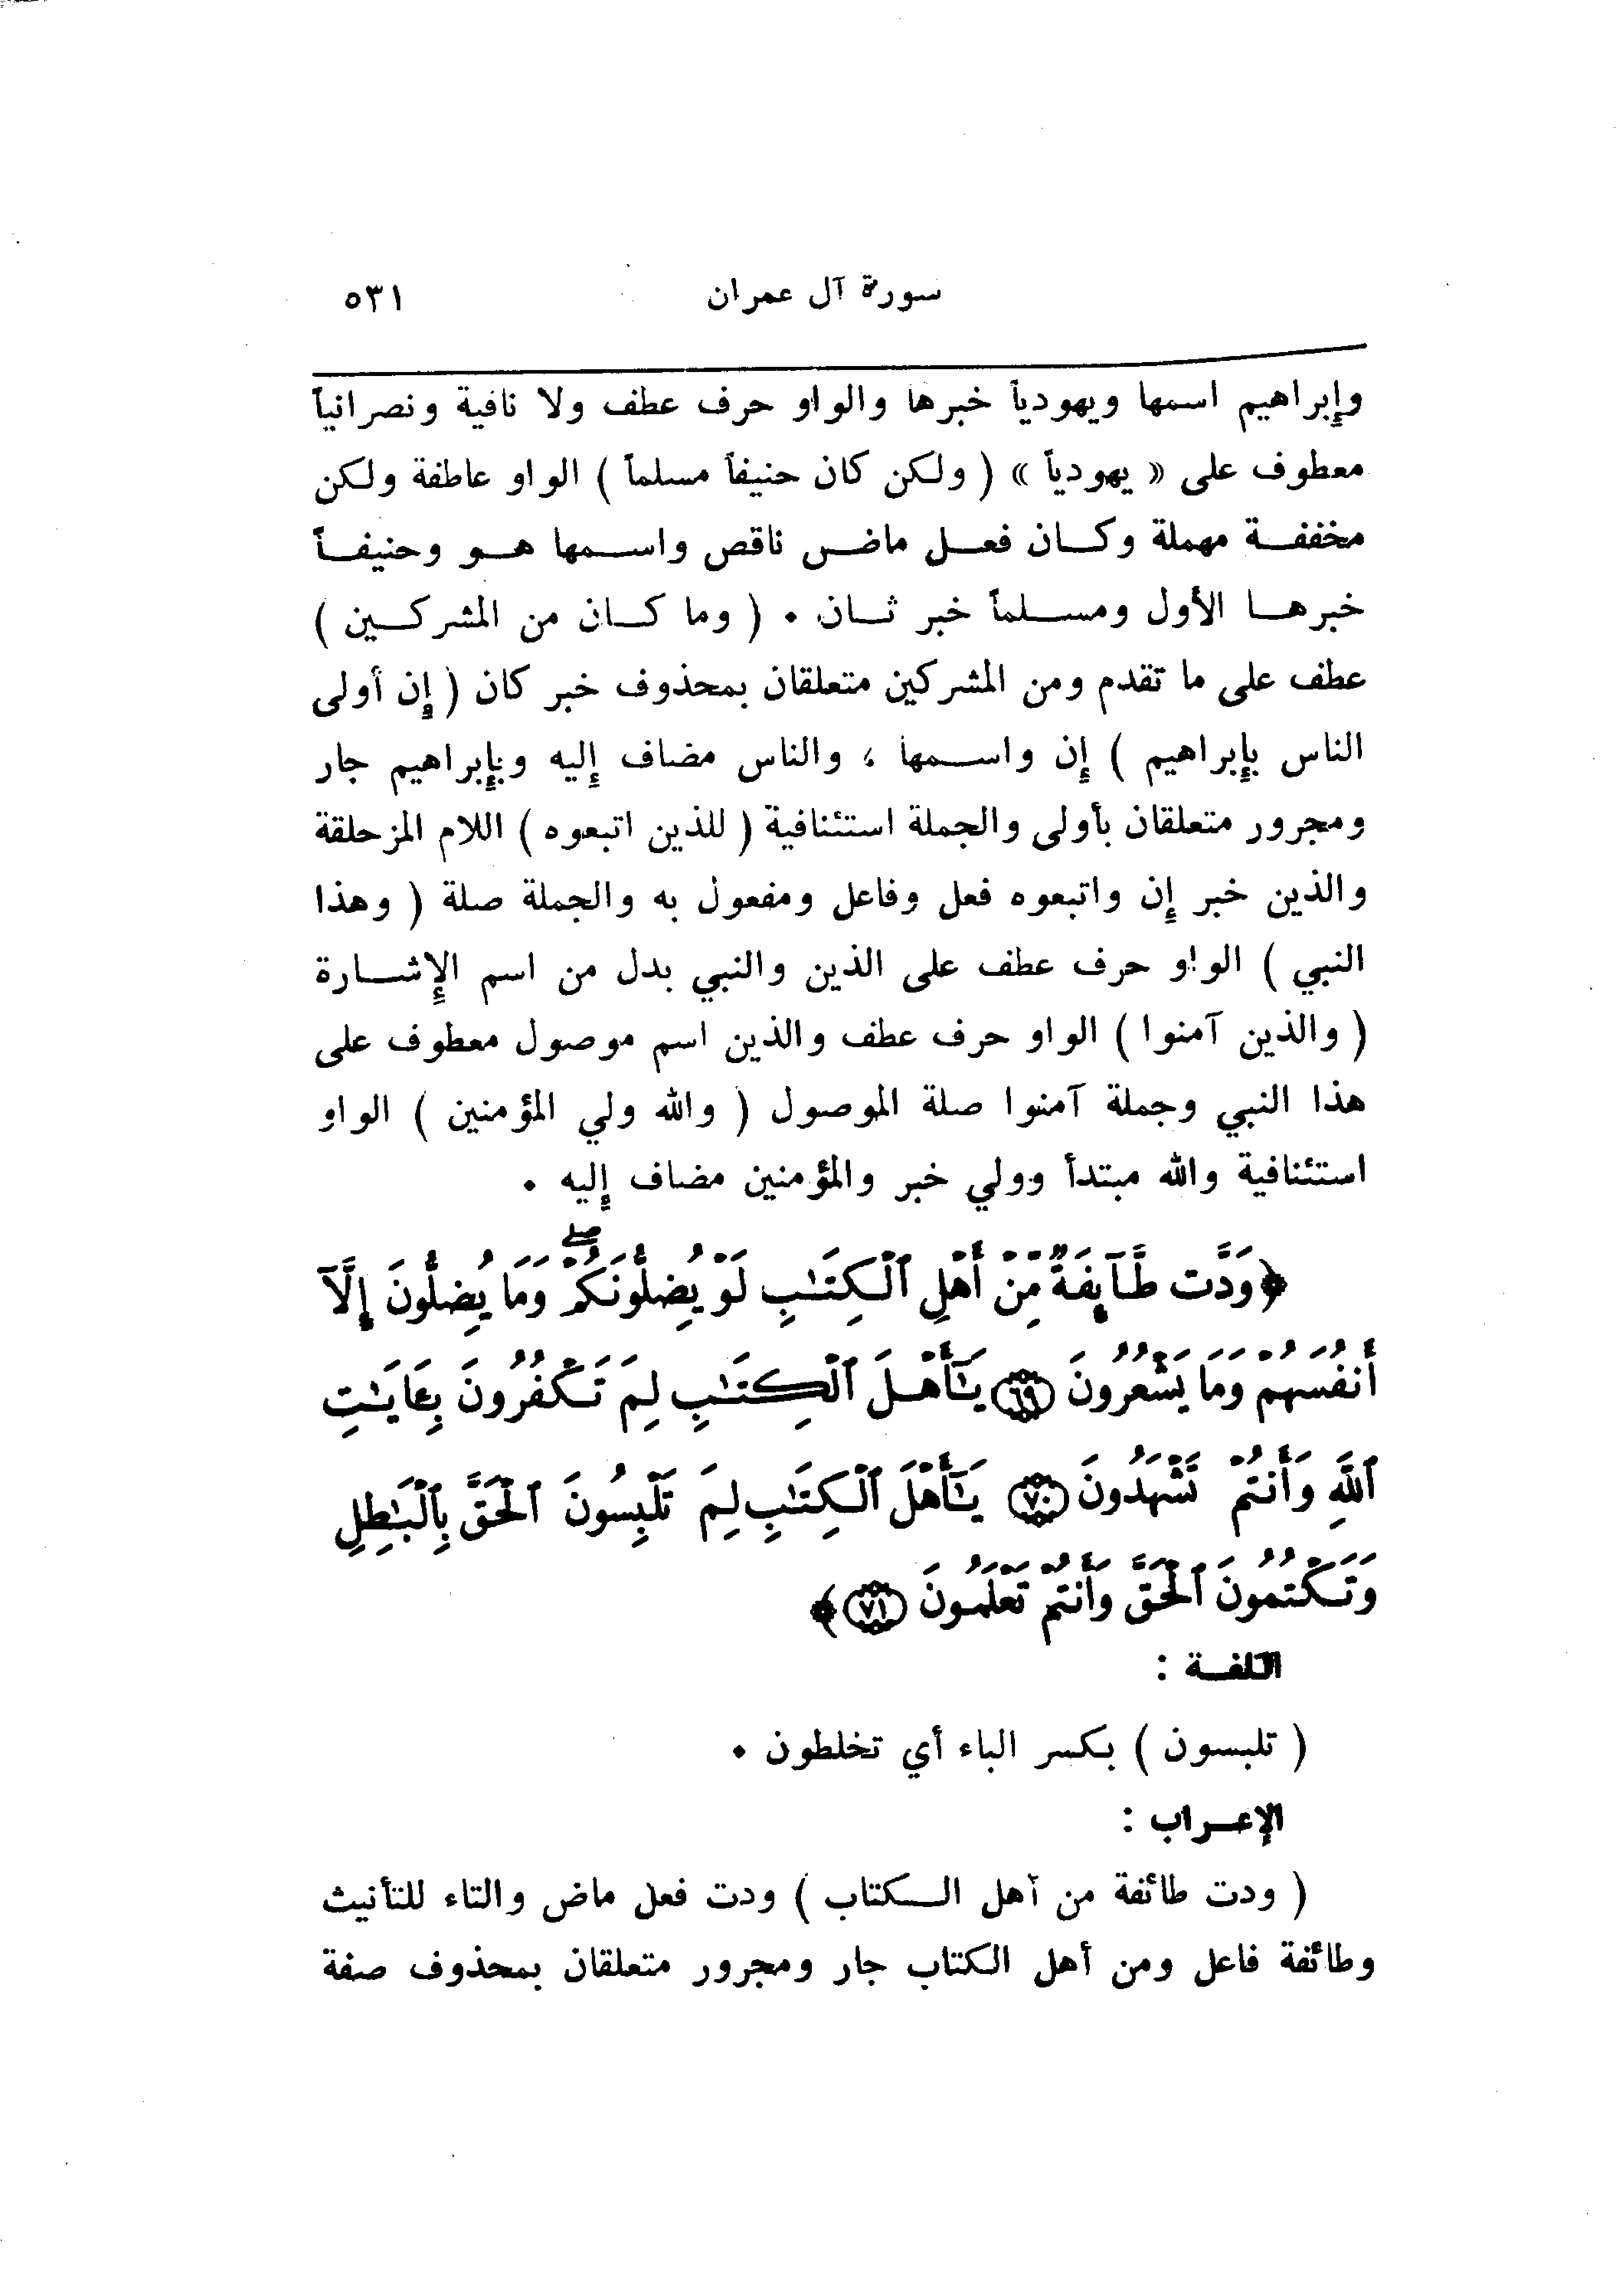 سورة آل عمران ٥٣١
وإبراهيم اسمها ويهودياً خبرها والواو حرف عطف ولا نافية ونصرانياً
معطوف على « يهودياً » ( ولكن كان حنيفاً مسلماً ) الواو عاطفة ولكن
مخففة مهملة وكان فعل ماض ناقص واسمها هو وحنيفاً
خبرها الأول ومسلماً خبر ثان . ( وما كان من المشركين )
عطف على ما تقدم ومن المشركين متعلقان بمحذوف خبر كان ( إن أولى
الناس بإبراهيم ) إن واسمها ، والناس مضاف إليه وبإبراهيم جار
ومجرور متعلقان بأولى والجملة استئنافية ( للذين اتبعوه ) اللام المزحلقة
والذين خبر إن واتبعوه فعل وفاعل ومفعول به والجملة صلة ( وهذا
النبي ) الواو حرف عطف على الذين والنبي بدل من اسم الإشارة
( والذين آمنوا ) الواو حرف عطف والذين اسم موصول معطوف على
هذا النبي وجملة آمنوا صلة الموصول ( والله ولي المؤمنين ) الواو
استئنافية والله مبتدأ وولي خبر والمؤمنين مضاف إليه .
﴿وَدَّت طَّآئِفَةٌ مِّنْ أَهْلِ ٱلْكِتَٰبِ لَوْ يُضِلُّونَكُمْ ۖ وَمَا يُضِلُّونَ إِلَّآ
أَنفُسَهُمْ وَمَا يَشْعُرُونَ ٦٩ يَٰٓأَهْلَ ٱلْكِتَٰبِ لِمَ تَكْفُرُونَ بِـَٔايَٰتِ
ٱللَّهِ وَأَنتُمْ تَشْهَدُونَ ٧٠ يَٰٓأَهْلَ ٱلْكِتَٰبِ لِمَ تَلْبِسُونَ ٱلْحَقَّ بِٱلْبَٰطِلِ
وَتَكْتُمُونَ ٱلْحَقَّ وَأَنتُمْ تَعْلَمُونَ ٧١﴾
اللغة :
( تلبسون ) بكسر الباء أي تخلطون .
الإعراب :
( ودت طائفة من أهل الكتاب ) ودت فعل ماض والتاء للتأنيث
وطائفة فاعل ومن أهل الكتاب جار ومجرور متعلقان بمحذوف صفة